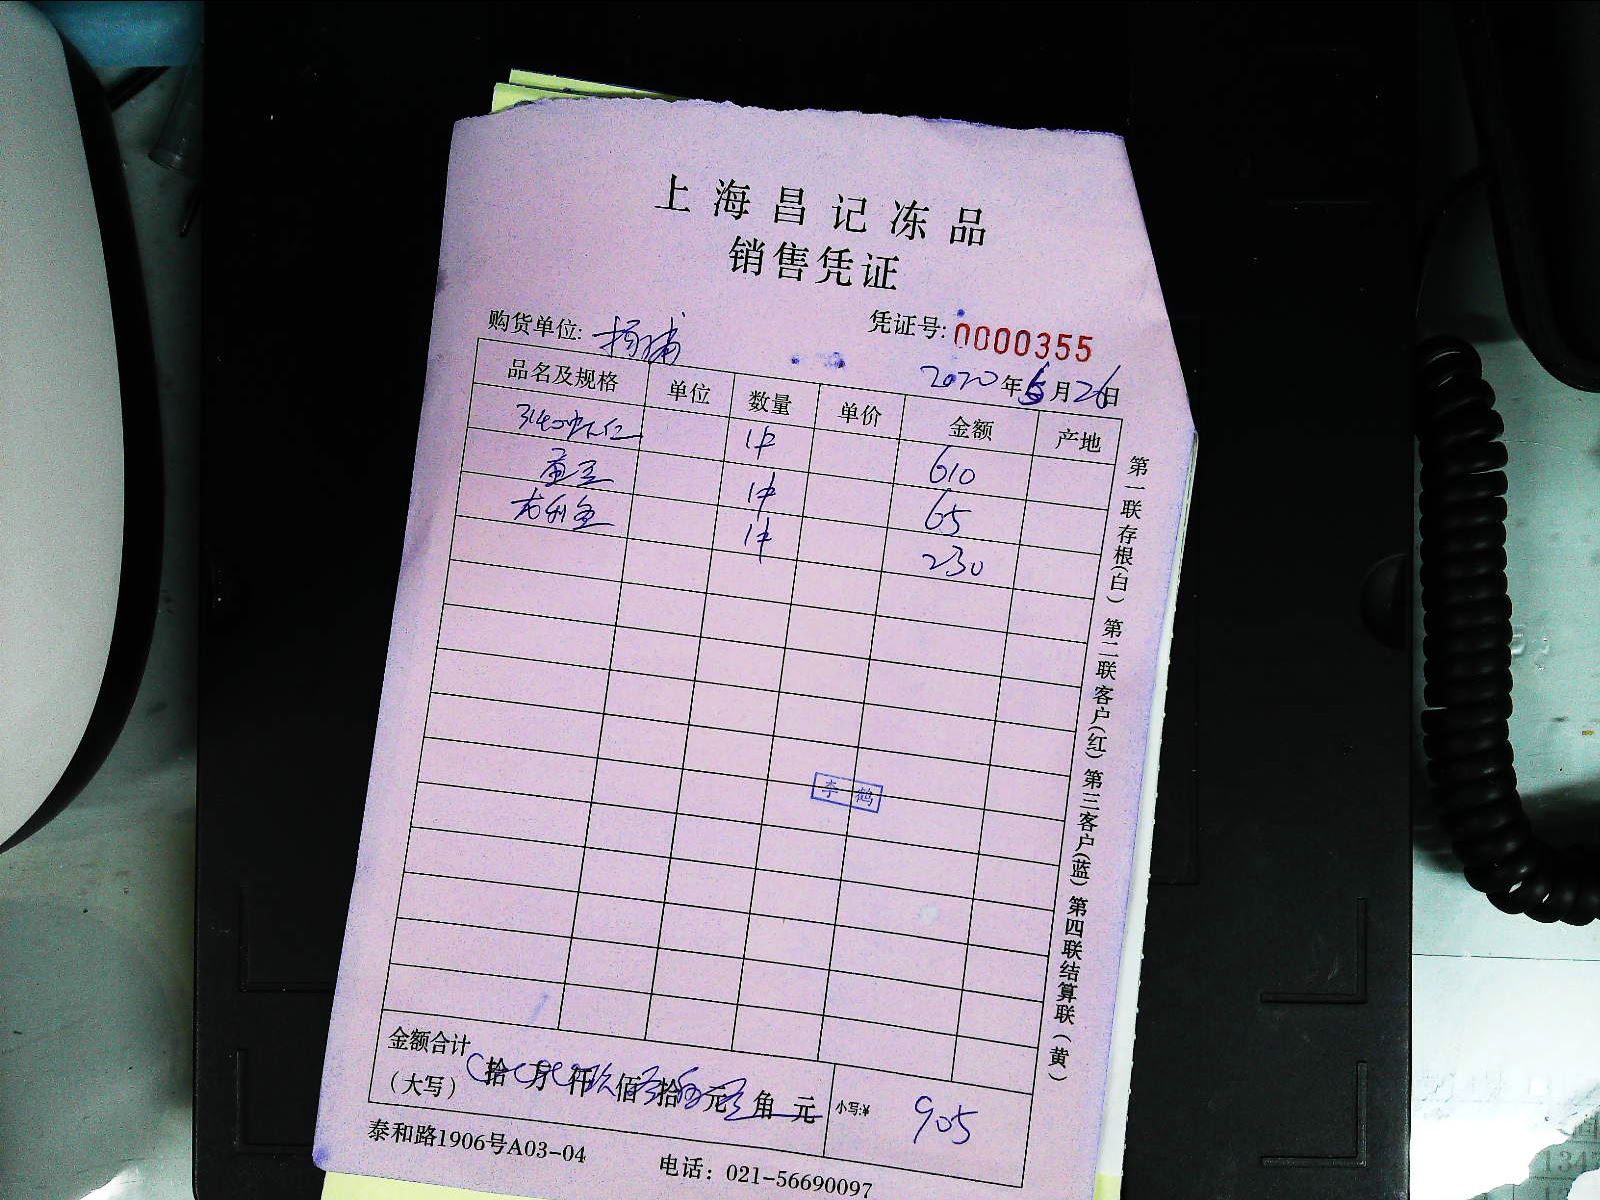 上海昌记冻品
销售凭证
购货单位: 杨浦 凭证号: 0000355
2020年5月26日
品名及规格 单位 数量 单价 金额 产地
3140虾仁 1件 610
1件 65
龙利鱼 1件 230
李鹤
金额合计(大写) 拾 万 仟 玖佰 零拾 伍元 零角 元 小写:¥ 905
泰和路1906号A03-04 电话: 021-56690097
第一联存根(白) 第二联客户(红) 第三客户(蓝) 第四联结算联(黄)